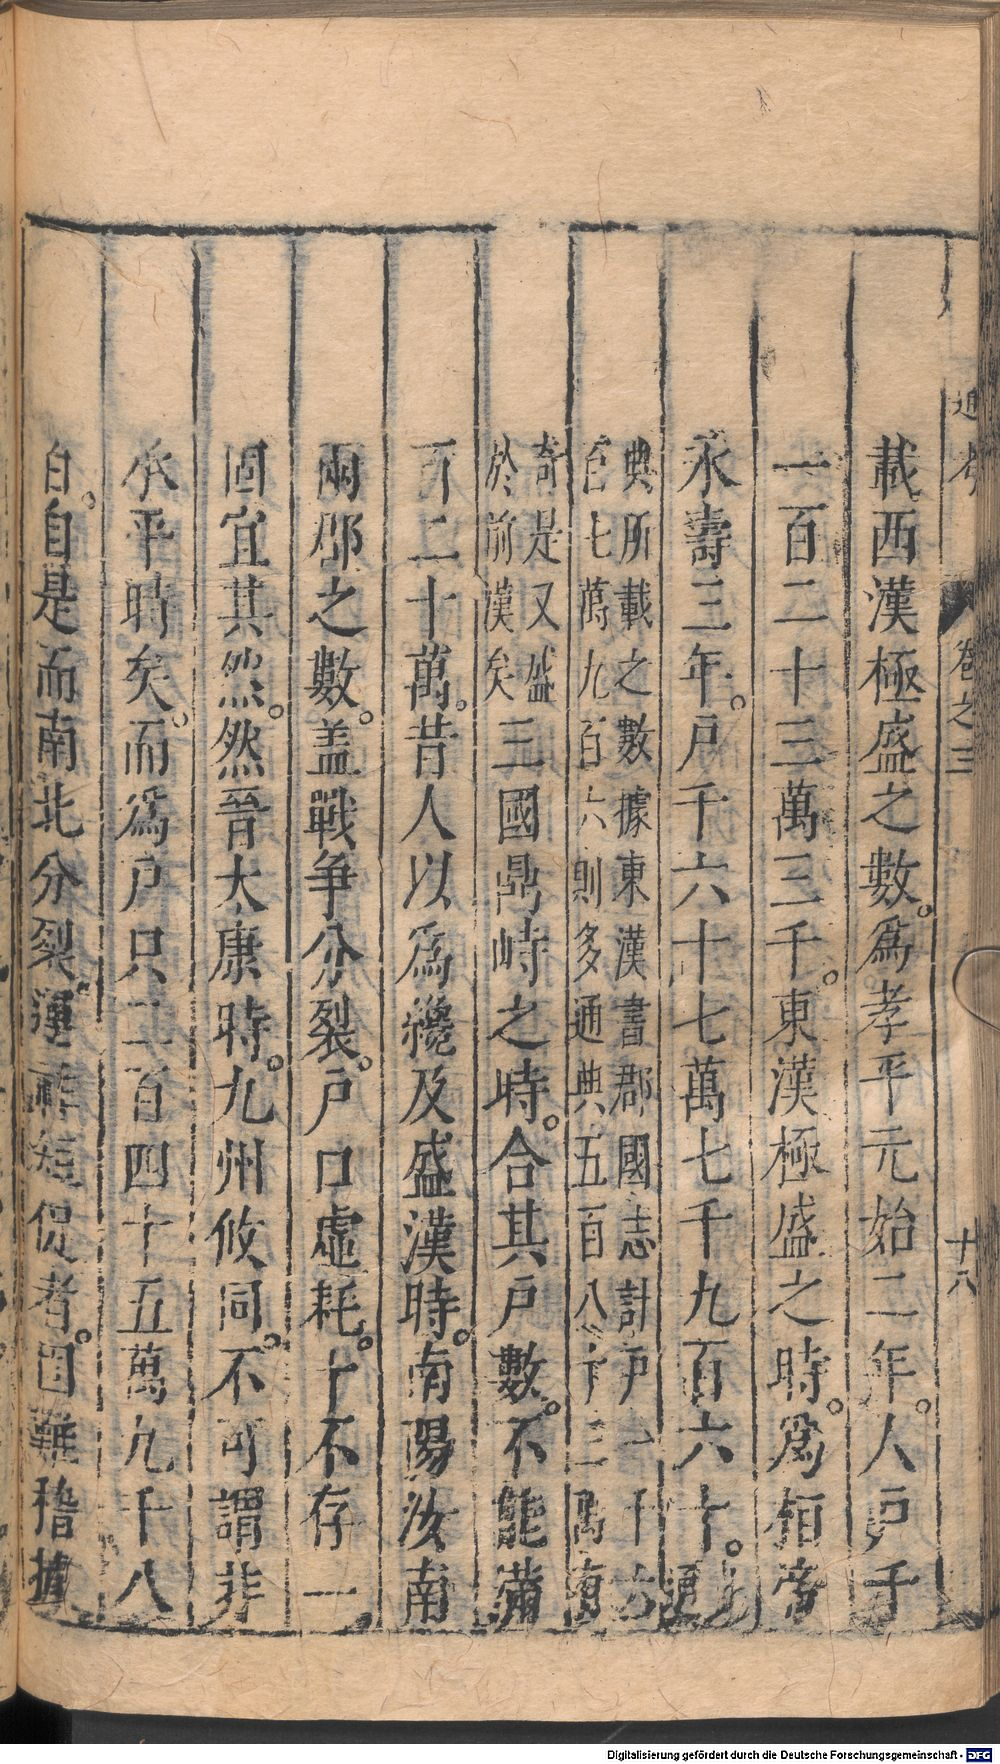 通考 卷之三 十八
載西漢極盛之數。爲孝平元始二年。人戶千
一百二十三萬三千。東漢極盛之時。爲桓帝
永壽三年。戶千六十七萬七千九百六十。此通
典所載之數據東漢書郡國志計戶一千六
百七萬九百六則多通典五百八十三萬有
奇是又盛
於前漢矣
三國鼎峙之時。合其戶數。不能滿
百二十萬。昔人以爲纔及盛漢時。南陽汝南
兩郡之數。盖戰爭分裂。戶口虛耗。十不存一
固宜其然。然晉太康時。九州攸同。不可謂非
承平時矣。而爲戶只二百四十五萬九千八
百。自是而南北分裂。運祚短促者。固難稽據
Digitalisierung gefördert durch die Deutsche Forschungsgemeinschaft - DFG